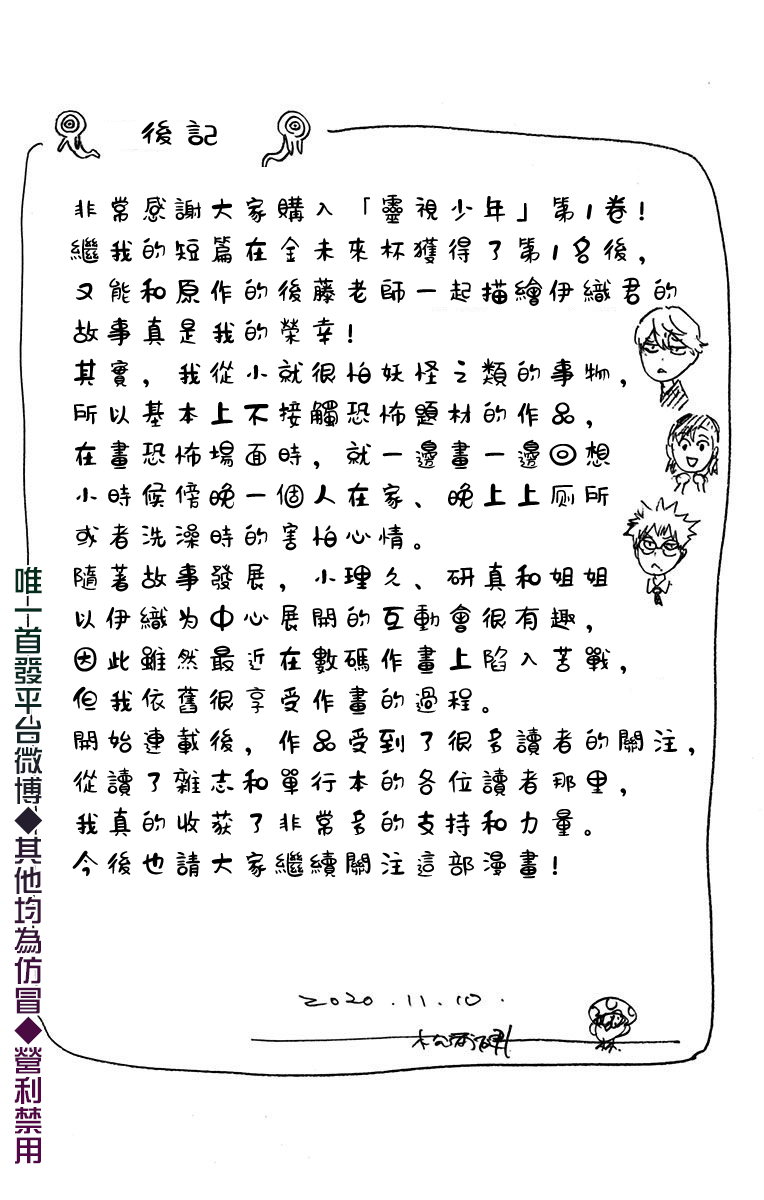 後記
非常感謝大家購入「靈視少年」第1卷!
繼我的短篇在金未來杯獲得了第1名後,
又能和原作的後藤老師一起描繪伊織君的
故事真是我的榮幸!
其實,我從小就很怕妖怪之類的事物,
所以基本上不接觸恐怖題材的作品,
在畫恐怖場面時,就一邊畫一邊回想
小時候傍晚一個人在家、晚上上厕所
或者洗澡時的害怕心情。
隨著故事發展,小理久、研真和姐姐
以伊織为中心展開的互動會很有趣,
因此雖然最近在數碼作畫上陷入苦戰,
但我依舊很享受作畫的過程。
開始連載後,作品受到了很多讀者的關注,
從讀了雜志和單行本的各位讀者那里,
我真的收获了非常多的支持和力量。
今後也請大家繼續關注這部漫畫!
2020.11.10.
唯一首發平台微博◆其他均為仿冒◆營利禁用